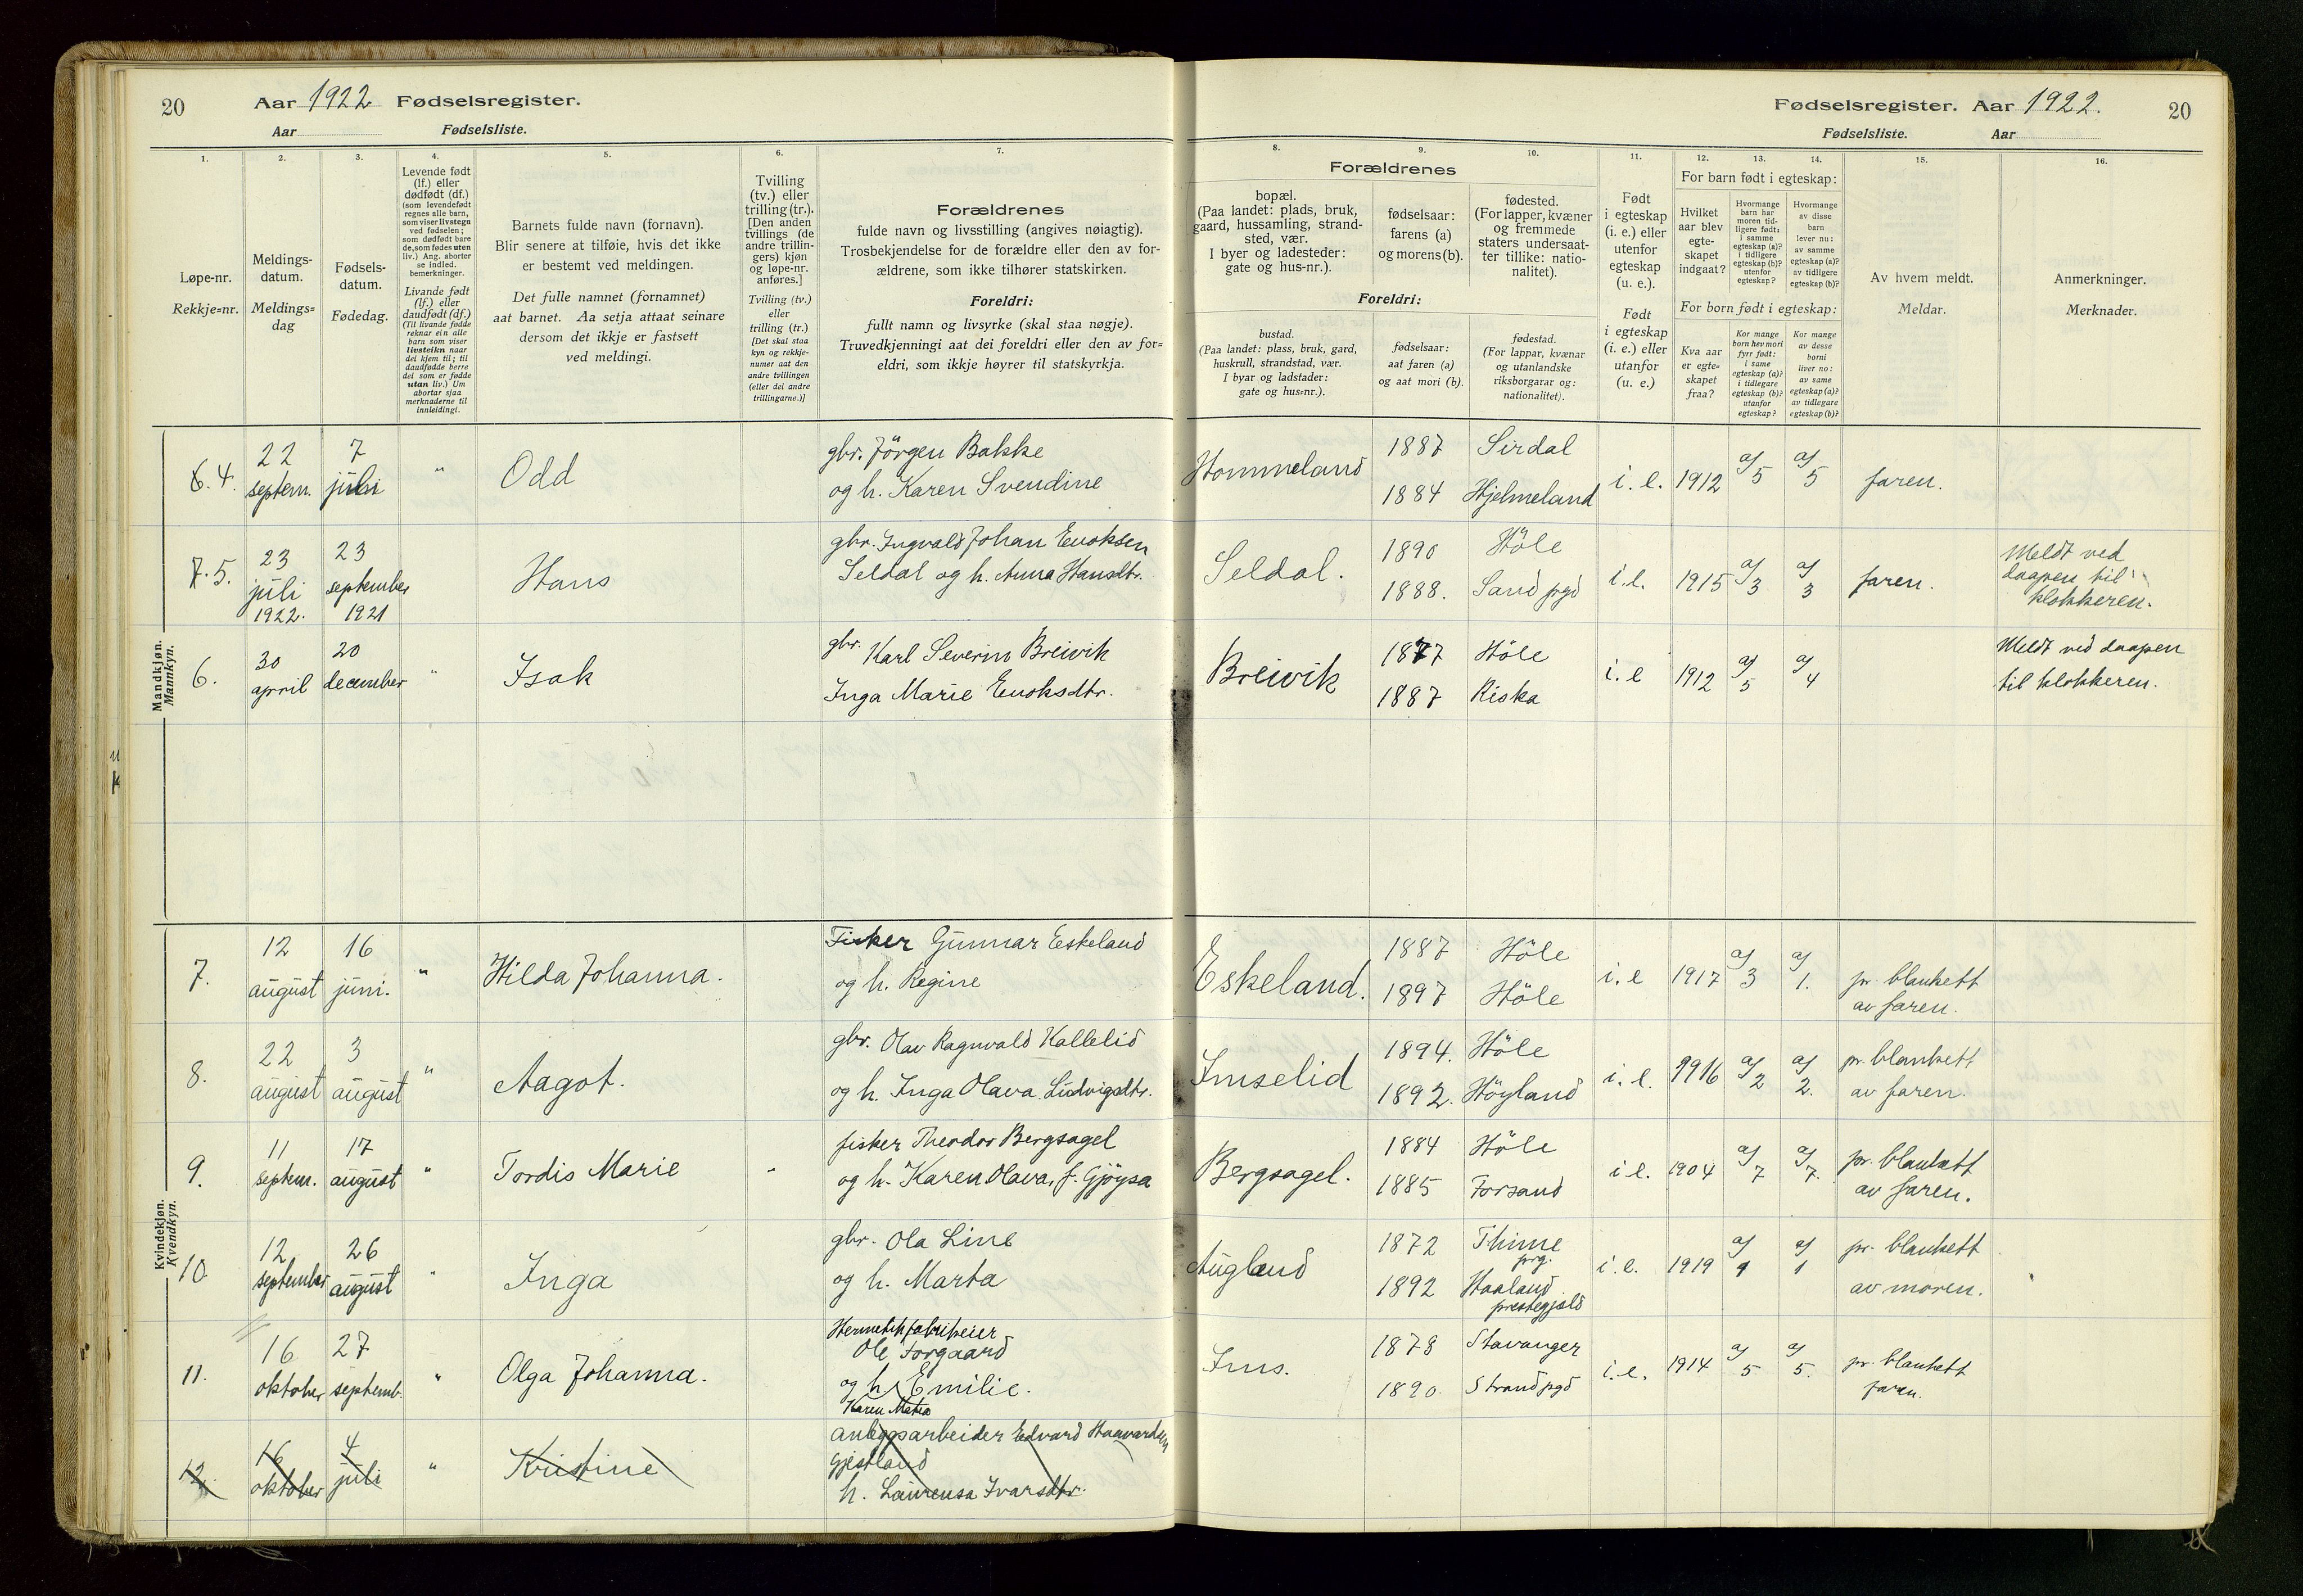 20
Aar 1922 Fødselsregister.
Aar Fødselsliste.
Fødselsregister. Aar 1922.
20
Fødselsliste. Aar
1.
2.
3.
4.
5.
6.
7.
8.
9.
10.
11.
12.
13.
14.
15.
16.
Løpe-nr.
Rekkje=nr.
Meldings-
datum.
Meldings=
dag
Fødsels-
datum.
Fødedag.
Levende født
(lf.) eller
dødfødt (df.)
(som levendefødt
regnes alle barn,
som viser livstegn
ved fødselen;
som dødfødt bare
de, som fødes uten
liv.) Ang. aborter
se indled.
bemerkninger.
Livande født
(lf.) eller
daudfødt (df.)
(Til livande fødde
reknar ein alle
barn som viser
livsteikn naar
dei kjem til; til
daudfødde berre
dei som er fødde
utan liv.) Um
abortar sjaa
merknaderne til
innleidingi.
Barnets fulde navn (fornavn).
Blir senere at tilføie, hvis det ikke
er bestemt ved meldingen.
Det fulle namnet (fornamnet)
aat barnet. Aa setja attaat seinare
dersom det ikkje er fastsett
ved meldingi.
Tvilling
(tv.) eller
trilling (tr.).
[Den anden
tvillings (de
andre trillin-
gers) kjøn
og løpe-nr.
anføres.]
Tvilling (tv.)
eller
trilling (tr.)
[Det skal staa
kyn og rekkje-
numer aat den
andre tvillingen
(eller dei andre
trillingarne.)]
Forældrenes
fulde navn og livsstilling (angives nøiagtig).
Trosbekjendelse for de forældre eller den av for-
ældrene, som ikke tilhører statskirken.
Foreldri:
fullt namn og livsyrke (skal staa nøgje).
Truvedkjenningi aat dei foreldri eller den av for=
eldri, som ikkje høyrer til statskyrkja.
Forældrenes
bopæl.
(Paa landet: plads, bruk,
gaard, hussamling, strand-
sted, vær.
I byer og ladesteder:
gate og hus-nr.).
fødselsaar:
farens (a)
og morens (b).
fødested.
(For lapper, kvæner
og fremmede
staters undersaat-
ter tillike: natio-
nalitet).
Foreldri:
bustad.
(Paa landet: plass, bruk, gard,
huskrull, strandstad, vær.
I byar og ladstader:
gate og hus=nr.).
fødselsaar:
aat faren (a)
og aat mori (b).
fødestad.
(For lappar, kvænar
og utanlandske
riksborgarar og:
nationalitet).
Født
i egteskap
(i. e.) eller
utenfor
egteskap
(u. e.).
Født
i egteskap
(i. e.) eller
utanfor
(u. e.)
For barn født i egteskap:
Hvilket
aar blev
egte-
skapet
indgaat?
Hvormange
barn har
moren tid-
ligere født:
i samme
egteskap (a)?
i tidligere
egteskap (b)?
utenfor
egteskap?
Hvormange
av disse
barn
lever nu:
av samme
egteskap (a)?
av tidligere
egteskap (b)?
For born født i egteskap:
Kva aar
er egte=
skapet
fraa?
Kor mange
born hev mori
fyrr født:
i same
egteskap (a)?
i tidlegare
egteskap (b)?
utanfor
egteskap?
Kor mange
av desse
borni
liver no:
av same
egteskap (a)?
av tidlegare
egteskap (b)?
Av hvem meldt.
Meldar.
Anmerkninger.
Merknader.
Mandkjøn.
Mannkyn.
6. 4. 22 septem. 7 juli " Odd
gbr. Jörgen Bakke
og h. Karen Svendine
Hommeland 1887 Sirdal
1884 Hjelmeland
i. e. 1912 a/5 a/5 faren.
7. 5. 23 juli 1922. 23 september 1921 Hans
gbr. Ingvald Johan Enoksen
Seldal og h. Anna Hansdtr.
Seldal. 1890 Höle
1888. Sand pgd
i.e. 1915 a/3 a/3 faren.
Meldt ved
daapen til
klokkeren.
6. 30 april 20 december " Isak
gbr. Karl Severin Breivik
Inga Marie Enoksdtr.
Breivik 1877 Höle
1887 Riska
i. e 1912 a/5 a/4
Meldt ved daapen
til klokkeren.
Kvindekjøn.
Kvendkyn.
7. 12 august 16 juni. " Hilda Johanna.
Fisker Gunnar Eskeland
og h. Regine
Eskeland. 1887 Höle
1897 Höle
i. e 1917 a/3 a/1.
pr. blankett
av faren.
8. 22 august 3 august " Aagot.
gbr. Olav Ragnvald Kallelid
og h. Inga Olava Ludvigsdtr.
Imselid 1894. Höle
1892. Höyland
i. e. 1916 a/2 a/2.
pr. blankett
av faren.
9. 11 septem. 17 august " Tordis Marie "
fisker Theodor Bergsagel
og h. Karen Olava, f. Gjöysa
Bergsagel. 1884 Höle
1885 Forsand
i e. 1904 a/7 a/7.
pr. blankett
av faren.
10. 12 september 26 august " Inga
gbr. Ola Line
og h. Marta
Augland 1872 Thime
prg.
1892 Haaland
prestegjeld
i. e. 1919 a/1 a/1
pr. blankett
av moren.
11. 16 oktober 27 septemb. " Olga Johanna.
Hermetikfabrikeier
Ole Torgaard
og h. Emilie.
Karen Matea
Ims. 1878 Stavanger
1890 Strand pgd
i. e. 1914 a/5 a/5.
pr. blankett
faren.
12. 16 oktober 4 juli " Kristine
anlegsarbeider Edvard Haavardsen
Gjestland
h. Laurensa Ivarsdtr.